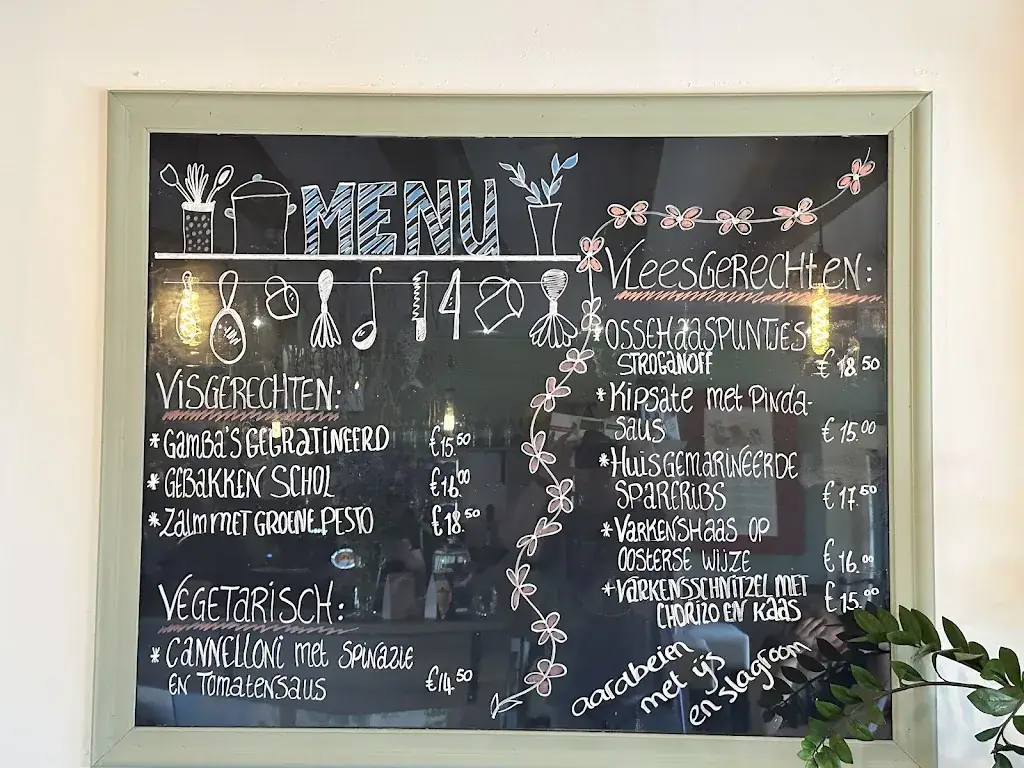 MENU
14
VISGERECHTEN:
* GAMBA'S GEGRATINEERD €15.50
* GEBAKKEN SCHOL €16.00
* ZALM MET GROENE PESTO €18.50
VEGETARISCH:
* CANNELLONI met SPINAZIE
EN TOMATENSAUS €14.50
VLEESGERECHTEN:
* OSSEHAASPUNTJES
STROGANOFF €18.50
* KIPSATE met PINDA-
SAUS €15.00
* HUISGEMARINEERDE
SPARERIBS €17.50
* VARKENSHAAS OP
OOSTERSE WIJZE €16.00
* VARKENSSCHNITZEL MET
CHORIZO EN KAAS €15.00
aardbeien
met ijs
en slagroom